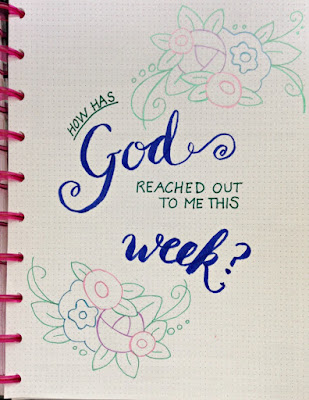 HOW HAS
God
REACHED OUT
TO ME THIS
week?